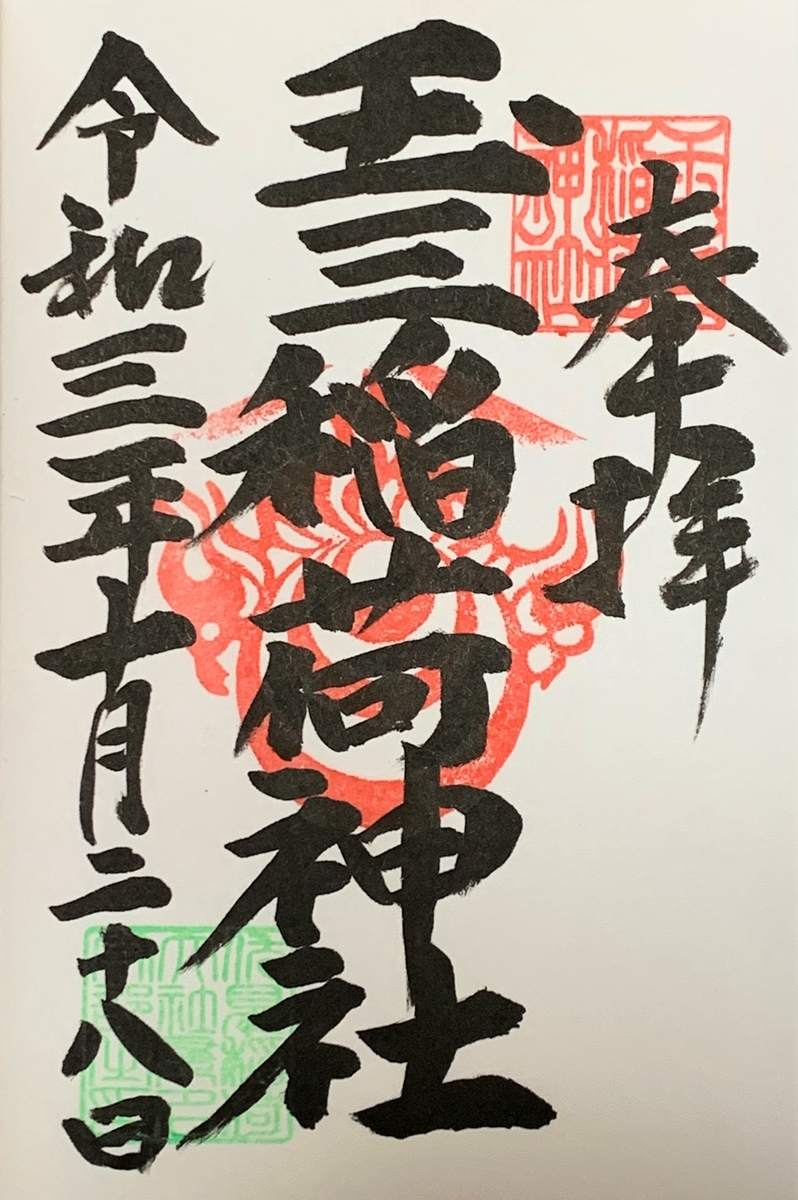 奉拝
玉三稲荷神社
令和三年十月二十八日